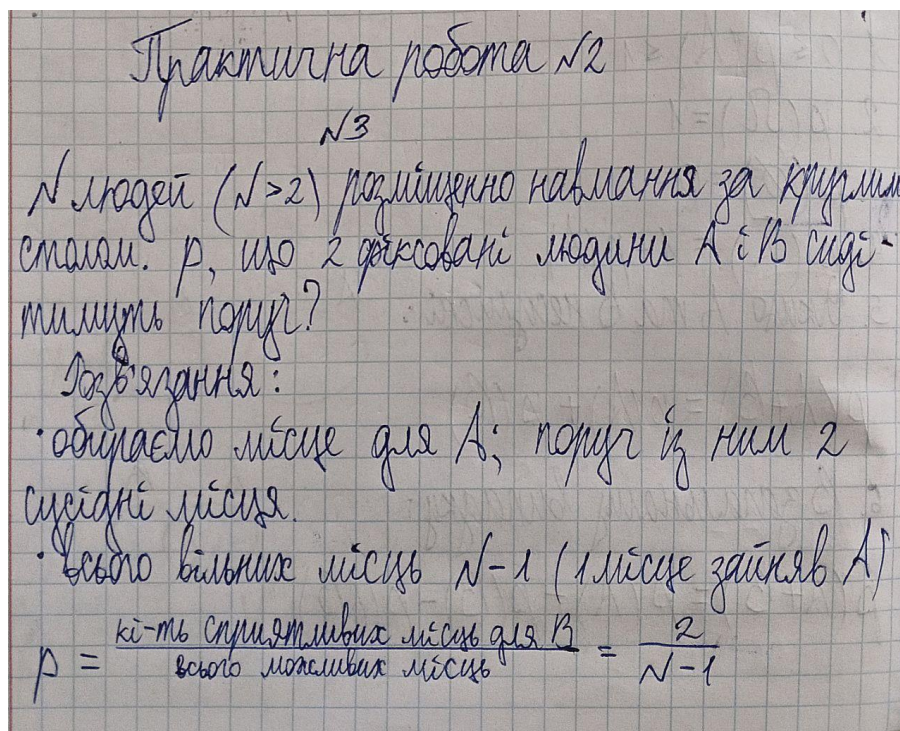 Практична робота №2
№3
N людей (N>2) розміщенно навмання за круглим
столом. p, що 2 фіксовані людини A і B сиді-
тимуть поруч?
Розв'язання:
· обираємо місце для A; поруч із ним 2
сусідні місця.
· всього вільних місць N-1 (1 місце зайняв A)
p = кі-ть сприятливих місць для B / всього можливих місць = 2 / N-1